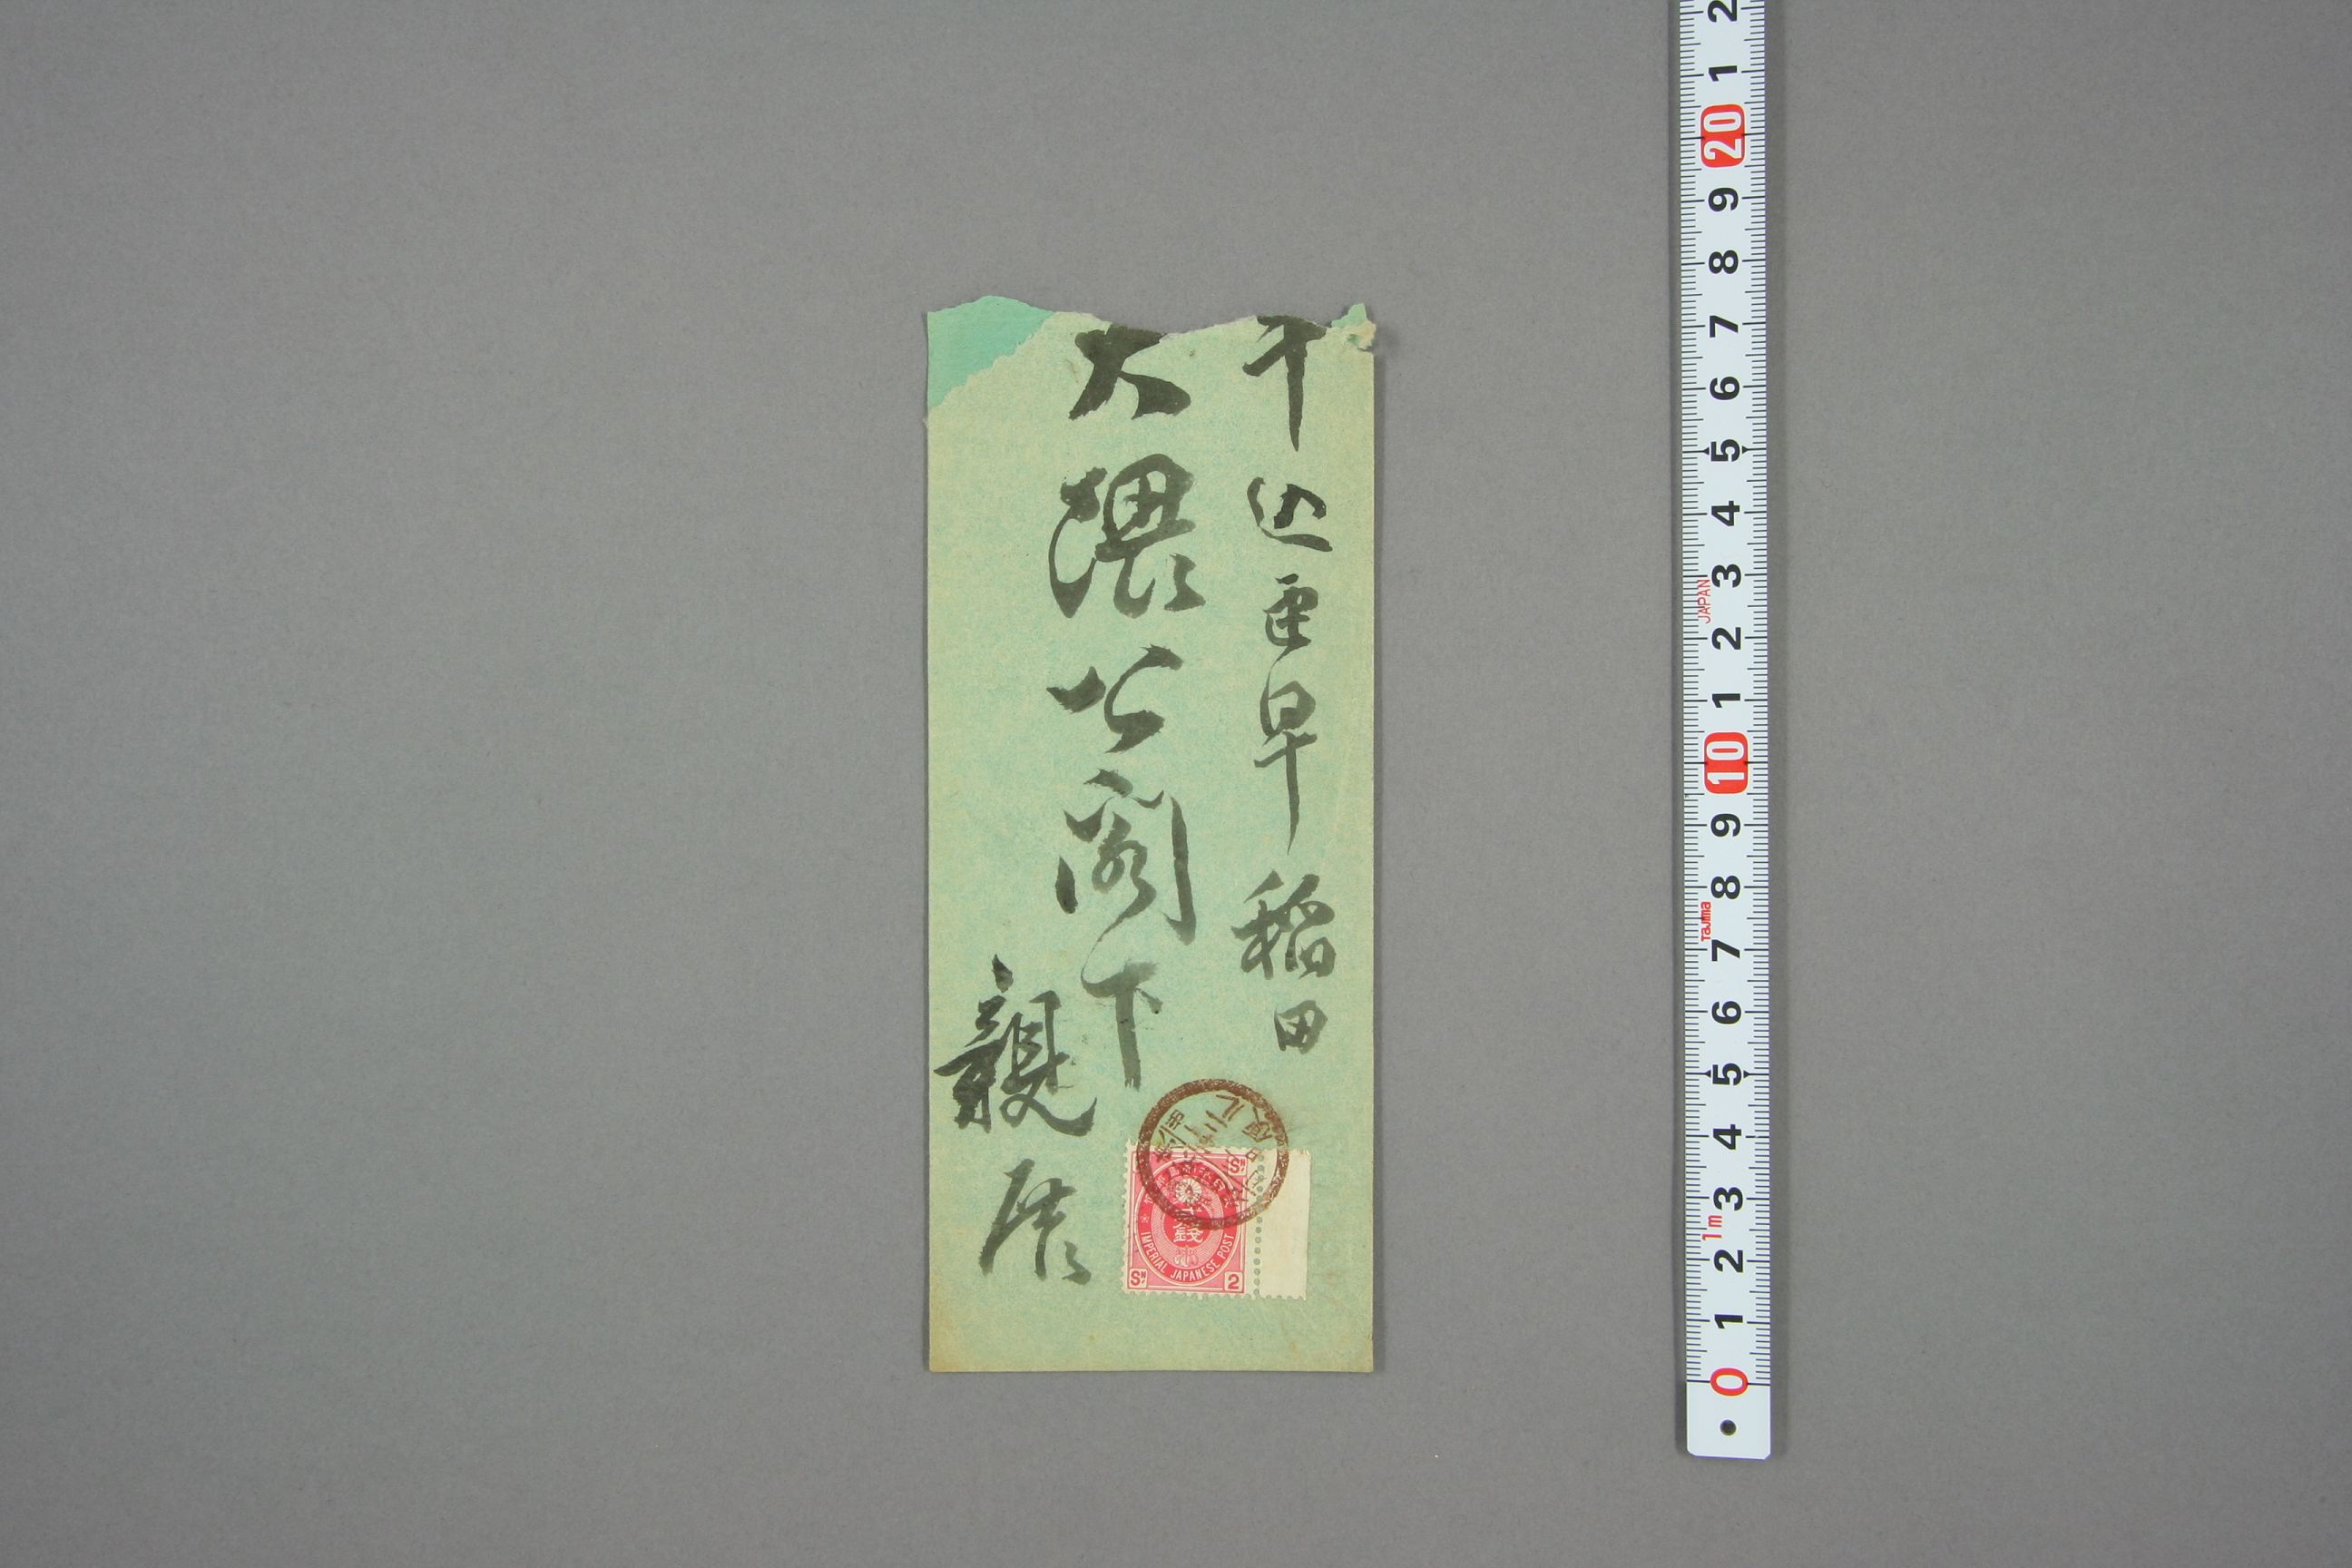 牛込区早稲田
大隈公閣下
親展
SN
銭
IMPERIAL JAPANESE POST
SN 2
2
1
20
9
8
7
6
5
4
3
JAPAN
2
1
10
9
8
Tajima
7
6
5
4
3
1m
2
1
0